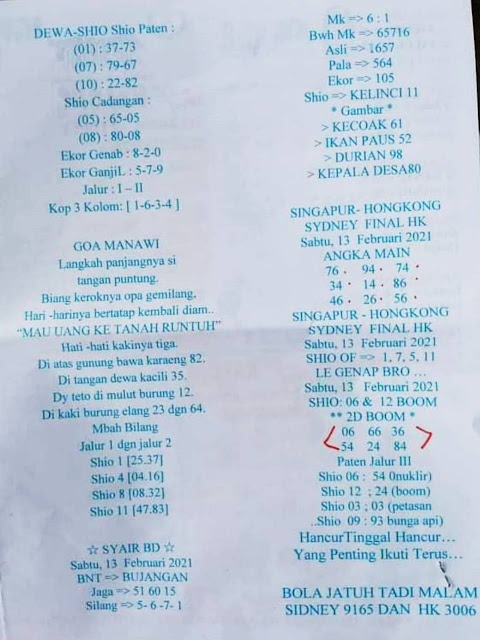 DEWA-SHIO Shio Paten :
(01) : 37-73
(07) : 79-67
(10) : 22-82
Shio Cadangan :
(05) : 65-05
(08) : 80-08
Ekor Genab : 8-2-0
Ekor GanjiL : 5-7-9
Jalur : I – II
Kop 3 Kolom: [ 1-6-3-4 ]
GOA MANAWI
Langkah panjangnya si
tangan puntung.
Biang keroknya opa gemilang.
Hari -harinya bertatap kembali diam..
“MAU UANG KE TANAH RUNTUH”
Hati -hati kakinya tiga.
Di atas gunung bawa karaeng 82.
Di tangan dewa kacili 35.
Dy teto di mulut burung 12.
Di kaki burung elang 23 dgn 64.
Mbah Bilang
Jalur 1 dgn jalur 2
Shio 1 [25.37]
Shio 4 [04.16]
Shio 8 [08.32]
Shio 11 [47.83]
☆ SYAIR BD ☆
Sabtu, 13 Februari 2021
BNT => BUJANGAN
Jaga => 51 60 15
Silang => 5- 6 -7- 1
Mk => 6 : 1
Bwh Mk => 65716
Asli => 1657
Pala => 564
Ekor => 105
Shio => KELINCI 11
* Gambar *
> KECOAK 61
> IKAN PAUS 52
> DURIAN 98
> KEPALA DESA80
SINGAPUR- HONGKONG
SYDNEY FINAL HK
Sabtu, 13 Februari 2021
ANGKA MAIN
76 · 94 · 74 ·
34 · 14 · 86 ·
46 · 26 · 56 ·
SINGAPUR - HONGKONG
SYDNEY FINAL HK
Sabtu, 13 Februari 2021
SHIO OF => 1, 7, 5, 11
LE GENAP BRO …
Sabtu, 13 Februari 2021
SHIO: 06 & 12 BOOM
** 2D BOOM *
06 66 36
54 24 84
Paten Jalur III
Shio 06 : 54 0nuklir)
Shio 12 ; 24 (boom)
Shio 03 ; 03 (petasan
..Shio 09 : 93 bunga api)
HancurTinggal Hancur…
Yang Penting Ikuti Terus…
BOLA JATUH TADI MALAM
SIDNEY 9165 DAN HK 3006